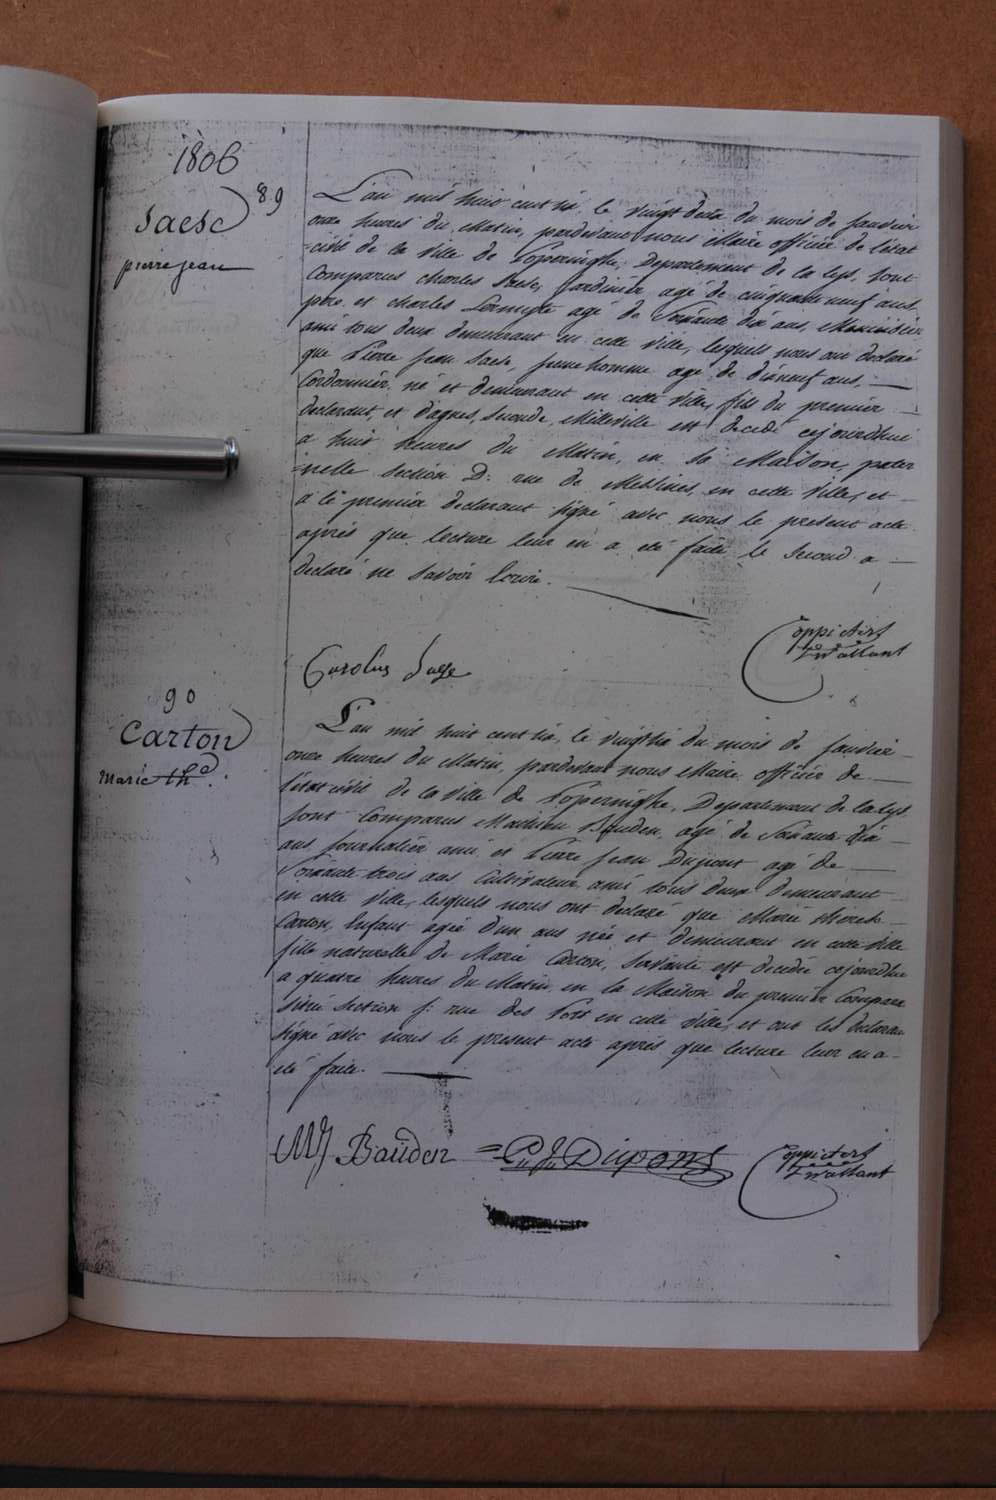 1806
89
Saesc
pierre jean
L'an mil huit cent six le vingt deux du mois de janvier
onze heures du Matin, pardevant nous Maire officier de l'état
=civil de la Ville de Poperinghe, Departement de la lys, sont
Comparus charles Saese, jardinier agé de cinquante neuf ans,
pere et charles agé de Soixante dix ans,
ami tous deux demeurant en cette Ville, lesquels nous ont declaré
que Pierre Jean Saese, jeune homme agé de dixneuf ans,
Cordonnier, né et demeurant en cette Ville, fils du premier
declarant, et d'agnes, seconde, Milleville est decedé cejourdhui
a huit heures du Matin, en sa Maison, pater
=nelle section D: rue de Messines, en cette Ville, et
a le premier declarant signé avec nous le present acte
après que lecture leur en a eté faite le second a
declaré ne savoir Ecrire.
Carolus Saese
Coppieters
T'wallant
90
Carton
Marie th.e
L'an mil huit cent six, le vingt six du mois de janvier
onze heures du Matin, pardevant nous Maire, officier de
l'état civil de la Ville de Poperinghe, Departement de la lys,
sont Comparus Mathieu Bauden, agé de Soixante dix
ans journalier ami, et Pierre Jean Dupont agé de
Soixante trois ans Cultivateur ami tous deux demeurant
en cette Ville, lesquels nous ont declaré que Marie therese
Carton, Enfant agée d'un ans née et demeurant en cette Ville
fille naturelle de Marie Carton, servante est decedée cejourdhui
a quatre heures du Matin en la Maison du premier Compara
située section f: rue des Pots en cette Ville, et ont les declaran
signé avec nous le present acte après que lecture leur en a
eté faite.
MJ Bauden = P. J. Dupont
Coppieters
T'wallant